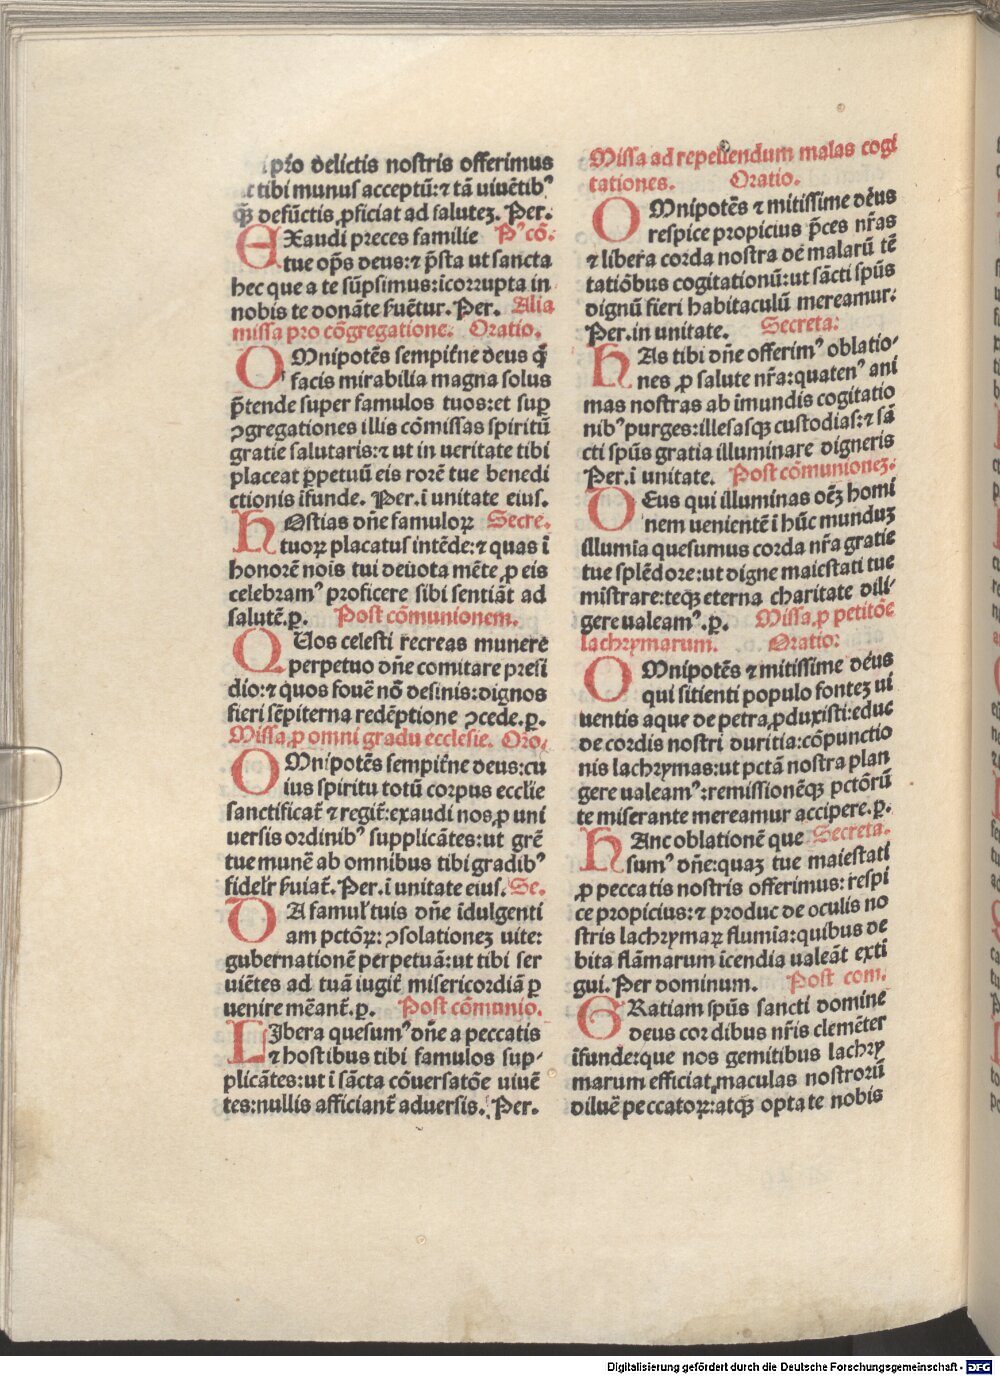 pro delictis nostris offerimus
tibi munus acceptū:⁊ tā uiuētibꝰ
q̄ꝫ defūctis ꝓficiat ad salutez. Per.
EXaudi preces familie Pꝰ cō.
tue op̄s deus:⁊ p̄sta ut sancta
hec que a te sūpsimus:icorrupta in
nobis te donāte ẜuētur. Per. Alia
missa pro cōgregatione. Oratio.
OMnipotēs sempit̄ne deus q̄
facis mirabilia magna solus
p̄tende super famulos tuos:et suꝑ
ꝯgregationes illis cōmissas spiritū
gratie salutaris:⁊ ut in ueritate tibi
placeat ꝑpetuū eis rorē tue benedi
ctionis īfunde. Per.ī unitate eius.
HOstias dn̄e famuloꝝ Secre.
tuoꝝ placatus intēde:⁊ quas ī
honorē nois tui deuota mēte ꝓ eis
celebramꝰ proficere sibi sentiāt ad
salutē.ꝑ. Post cōmunionem.
QUos celesti recreas munere
perpetuo dn̄e comitare presi
dio:⁊ quos fouē nō desinis:dignos
fieri sēpiterna redēptione ꝯcede.ꝑ.
Missa ꝓ omni gradu ecclesie. Oro.
OMnipotēs sempit̄ne deus:cu
ius spiritu totū corpus ecclie
sanctificat̄ ⁊ regit̄:exaudi nos ꝓ uni
uersis ordinibꝰ supplicātes:ut grē
tue munē ab omnibus tibi gradibꝰ
fidelr̄ ẜuiat̄. Per.ī unitate eius. Se.
DA famul̄ tuis dn̄e īdulgenti
am pctōꝝ: ꝯsolationez uite:
gubernationē perpetuā:ut tibi ser
uiētes ad tuā iugit̄ misericordiā ꝑ
uenire mēant̄.ꝑ. Post cōmunio.
LIbera quesumꝰ dn̄e a peccatis
⁊ hostibus tibi famulos sup⸗
plicātes:ut ī sācta cōuersatōe uiuē
tes:nullis afficiant̄ aduersis. Per.
Missa ad repellendum malas cogi
tationes. Oratio.
OMnipotēs ⁊ mitissime deus
respice propicius p̄ces nr̄as
⁊ libera corda nostra de malarū tē
tatiōbus cogitationū:ut sācti spūs
dignū fieri habitaculū mereamur:
Per.in unitate. Secreta:
HAs tibi dn̄e offerimꝰ oblatio⸗
nes ꝓ salute nr̄a:quatenꝰ ani
mas nostras ab īmundis cogitatio
nibꝰ purges:illesasqꝫ custodias:⁊ sā
cti spūs gratia illuminare digneris
Per.ī unitate. Post cōmunionez:
DEus qui illuminas oēz homi
nem uenientē ī hūc munduz
illumīa quesumus corda nr̄a gratie
tue splēdore:ut digne maiestati tue
mīstrare:teqꝫ eterna charitate dili⸗
gere ualeamꝰ.ꝑ. Missa ꝓ petitōe
lachrymarum. Oratio:
OMnipotēs ⁊ mitissime deus
qui sitienti populo fontez ui
uentis aque de petra ꝓduxisti:educ
de cordis nostri duritia:cōpunctio
nis lachrymas:ut pctā nostra plan
gere ualeamꝰ:remissionēqꝫ pctōrū
te miserante mereamur accipere.ꝑ.
HAnc oblationē que Secreta.
sumꝰ dn̄e:quaz tue maiestati
ꝓ peccatis nostris offerimus: respi
ce propicius:⁊ produc de oculis no
stris lachrymaꝝ flumīa:quibus de
bita flāmarum īcendia ualeāt exti
gui. Per dominum. Post com.
GRatiam spūs sancti domine
deus cordibus nr̄is clemēter
īfunde:que nos gemitibus lachry
marum efficiat maculas nostrorū
diluē peccatoꝝ:atqꝫ optate nobis
Digitalisierung gefördert durch die Deutsche Forschungsgemeinschaft - DFG